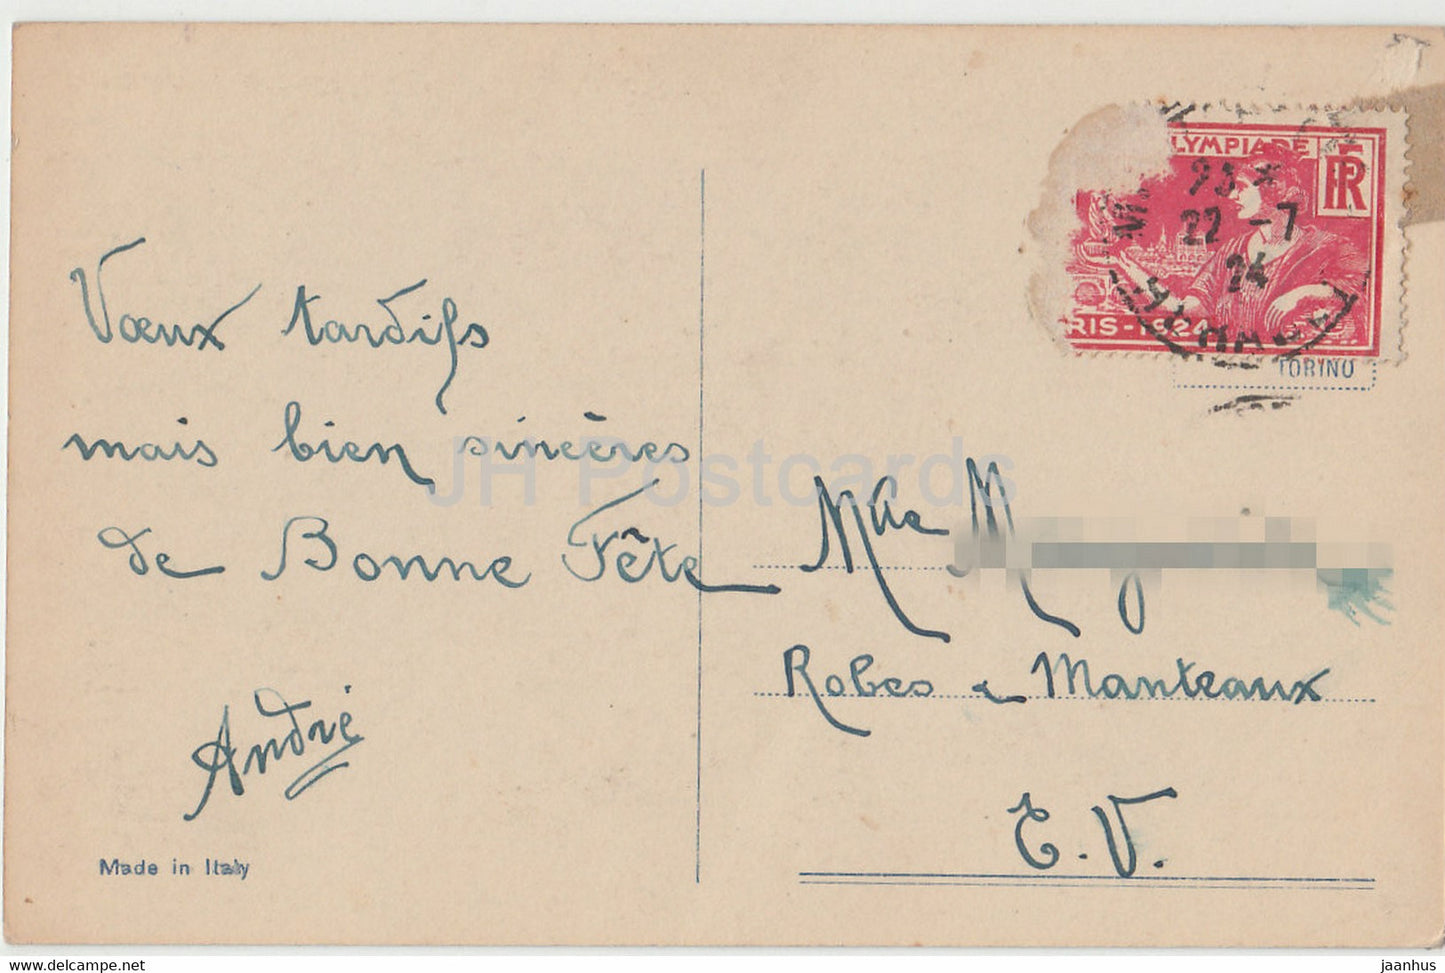 LYMPIADE
RF
23 *
22 -7
24
RIS - 1924
TORINO
Vœux tardifs
mais bien sincères
de Bonne Fête
André
Mlle M
Robes & Manteaux
E.V.
Made in Italy
JH Postcards
www.delcampe.net
jaanhus